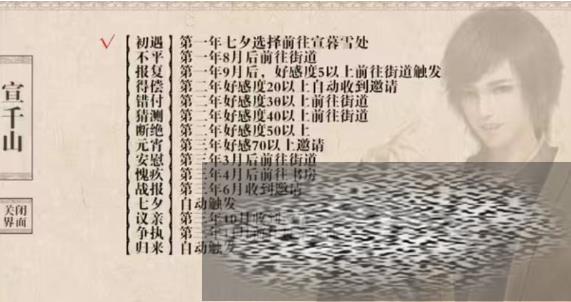 宣千山
关闭界面
初遇 第一年七夕选择前往宣暮雪处
不平 第一年8月后前往街道
报复 第一年9月后，好感度5以上前往街道触发
得偿 第二年好感度20以上自动收到邀请
错付 第二年好感度30以上前往街道
猜测 第二年好感度40以上前往街道
断绝 第二年好感度50以上
元宵 第三年好感70以上邀请
安慰 第三年3月后前往街道
愧疚 第三年4月后前往书房
战报 第三年6月收到邀请
七夕 自动触发
议亲 第三年10月收到
争执
归来 自动触发